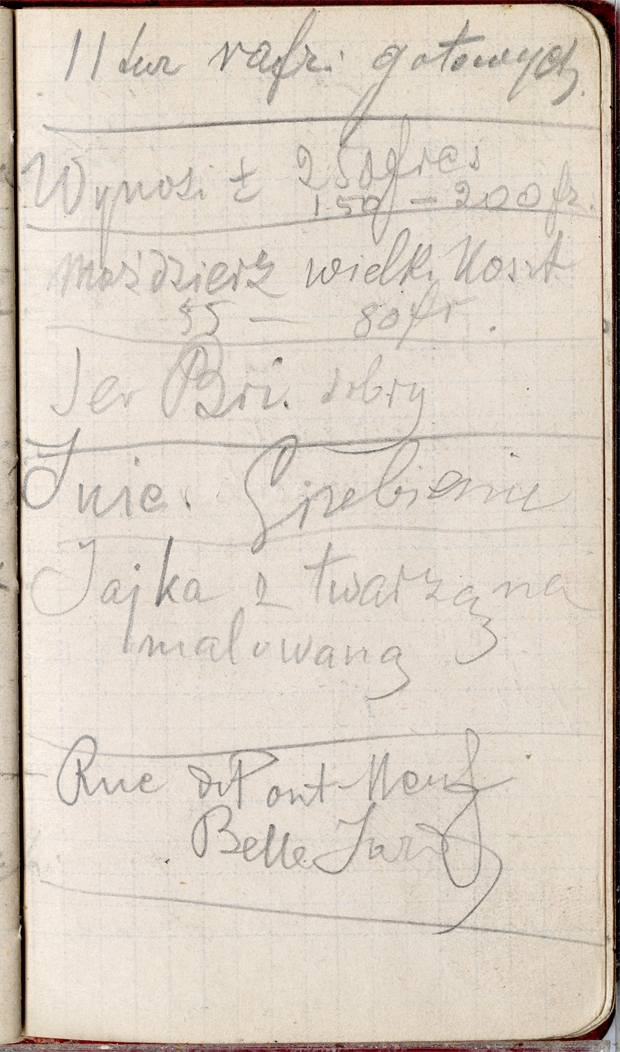 11 tur rafr. gotowych.
Wynosi Ł 250 frcs
150 – 200 fr.
moździerz wielki Koszt
55 – 80 fr.
Ser Bri. dobry
Śnie. Grzebieniu
Jajka z twarzą na
malowaną
Rue du Pont-Neuf
Belle